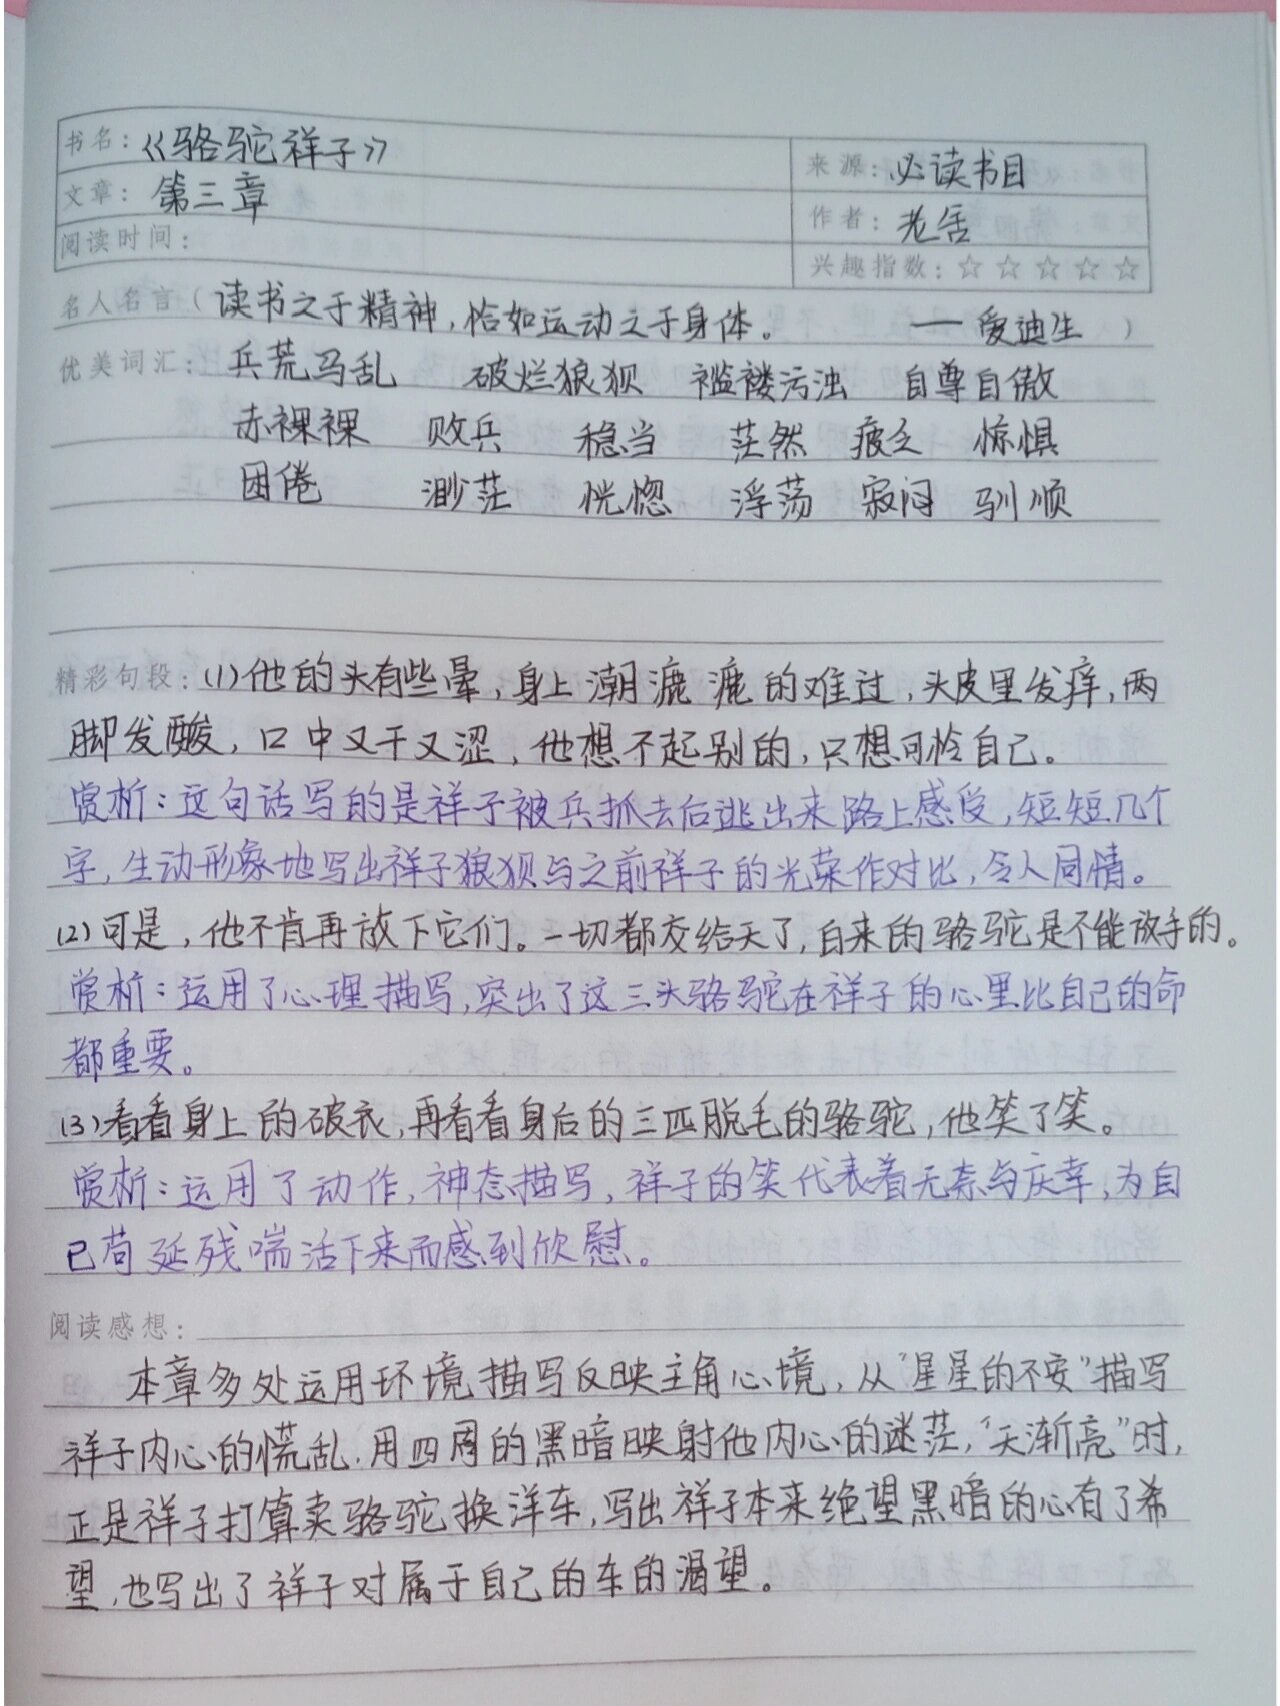 书名：《骆驼祥子》
来源：必读书目
文章：第三章
作者：老舍
阅读时间：
兴趣指数：☆☆☆☆☆
名人名言（读书之于精神，恰如运动之于身体。 —爱迪生）
优美词汇：兵荒马乱 破烂狼狈 褴褛污浊 自尊自傲
赤裸裸 败兵 稳当 茫然 疲乏 惊惧
困倦 渺茫 恍惚 浮荡 寂闷 驯顺
精彩句段：(1)他的头有些晕，身上潮漉漉的难过，头皮里发痒，两
脚发酸，口中又干又涩，他想不起别的，只想可怜自己。
赏析：这句话写的是祥子被兵抓去后逃出来路上感受，短短几个
字，生动形象地写出祥子狼狈与之前祥子的光荣作对比，令人同情。
(2)可是，他不肯再放下它们。一切都交给天了，白来的骆驼是不能放手的。
赏析：运用了心理描写，突出了这三头骆驼在祥子的心里比自己的命
都重要。
(3)看看身上的破衣，再看看身后的三匹脱毛的骆驼，他笑了笑。
赏析：运用了动作，神态描写，祥子的笑代表着无奈与庆幸，为自
己苟延残喘活下来而感到欣慰。
阅读感想：
本章多处运用环境描写反映主角心境，从“星星的不安”描写
祥子内心的慌乱，用四周的黑暗映射他内心的迷茫，“天渐亮”时，
正是祥子打算卖骆驼换洋车，写出祥子本来绝望黑暗的心有了希
望，也写出了祥子对属于自己的车的渴望。